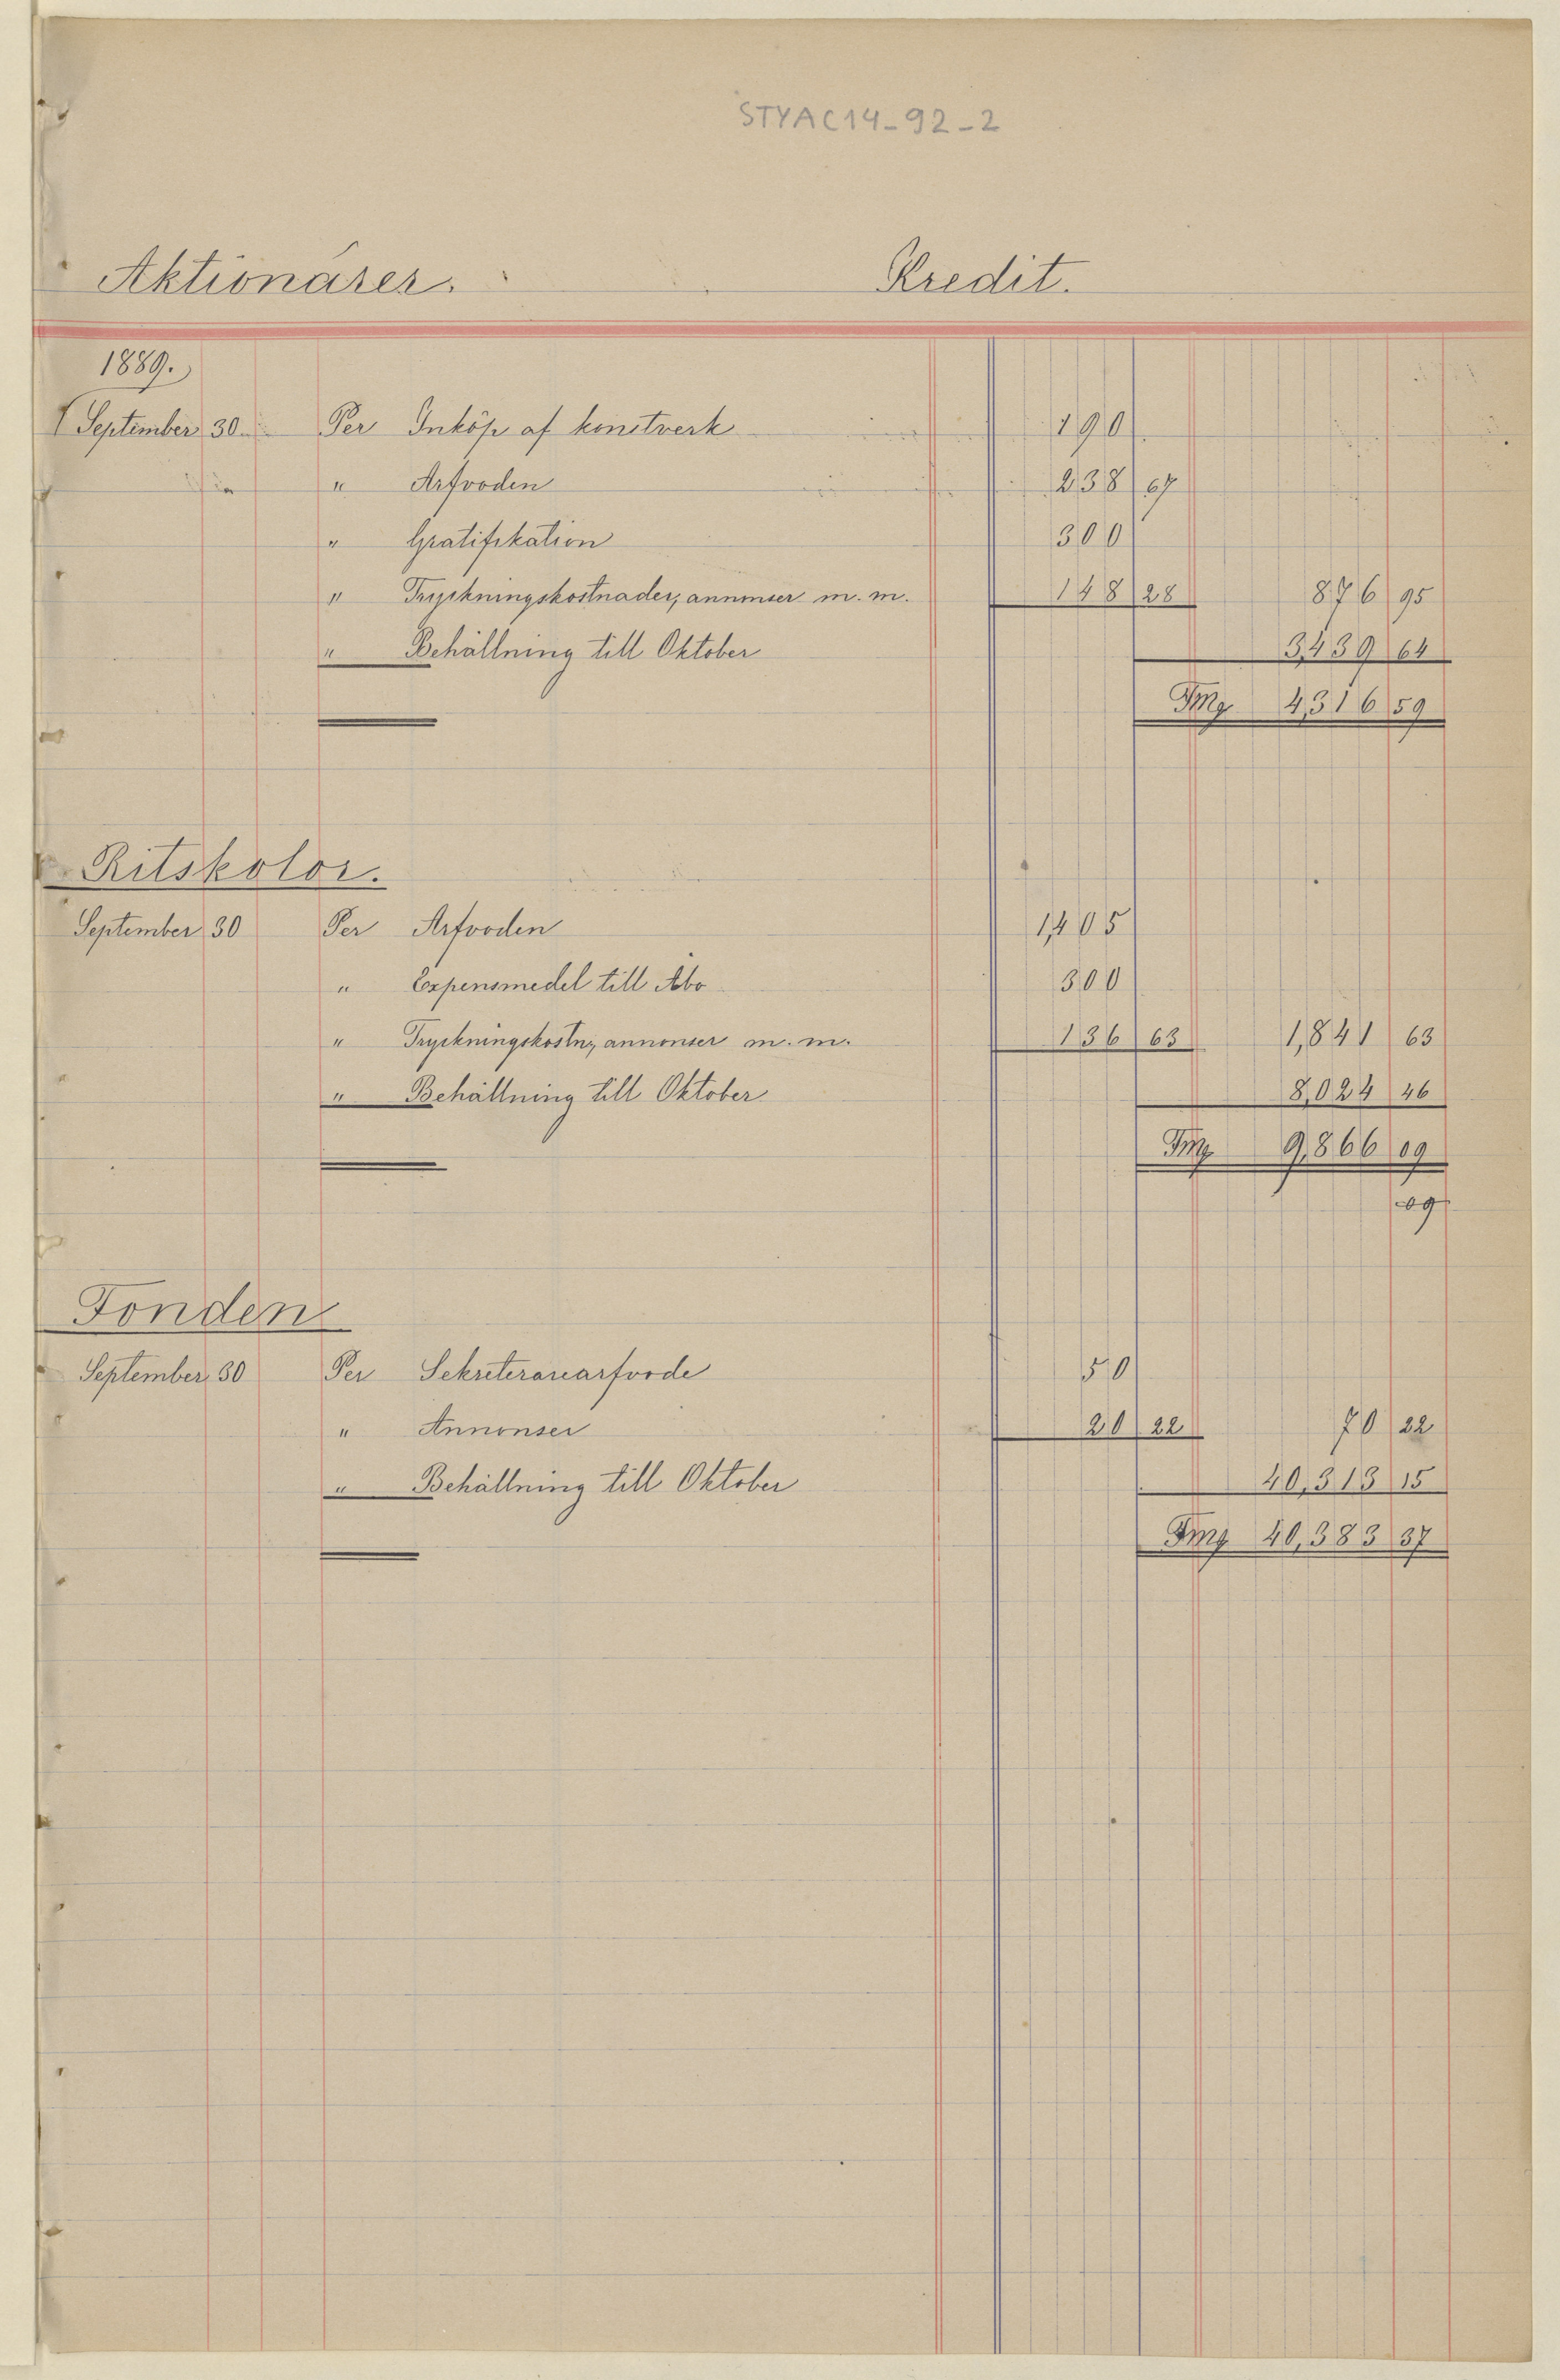 STYAC14-92-2
Aktionärer. Kredit.
1889.
September 30. Per Inköp af konstverk 190
" Arfvoden 238 67
" Gratifikation 300
" Tryckningskostnader, annonser m. m. 148 28 876 95
" Behållning till Oktober 3,439 64
Fmg 4,316 59
Ritskolor.
September 30 Per Arfvoden 1,405
" Expensmedel till Åbo 300
" Tryckningskostn., annonser m. m. 136 63 1,841 63
" Behållning till Oktober 8,024 46
Fmg 9,866 09
09
Fonden
September 30 Per Sekreterarearfvode 50
" Annonser 20 22 70 22
" Behållning till Oktober 40,313 15
Fmg 40,383 37